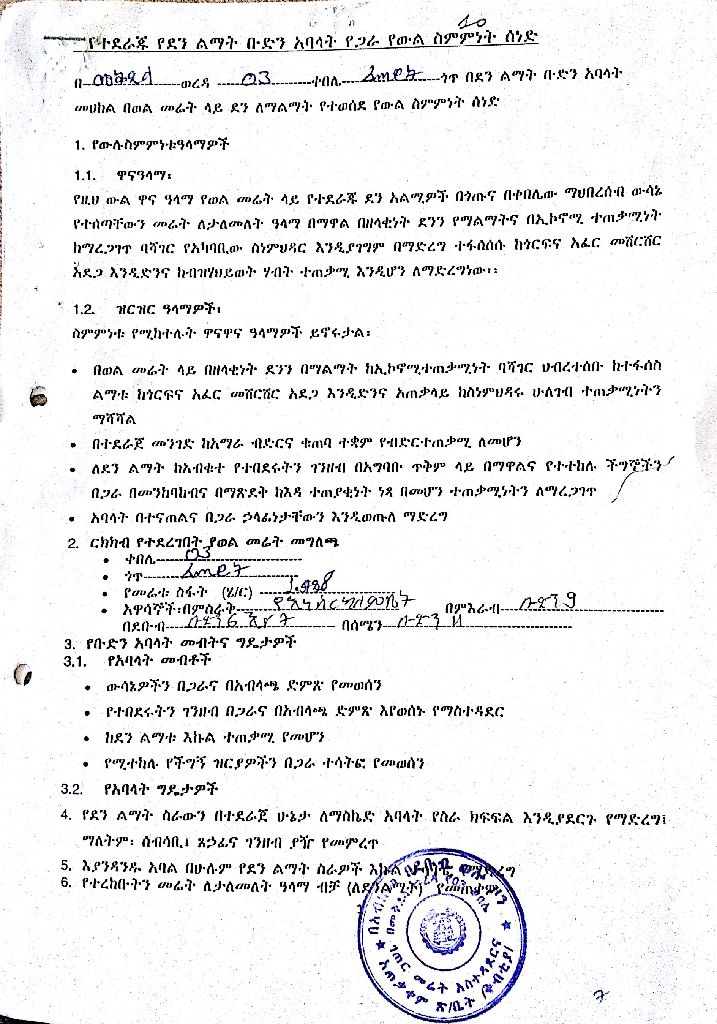 10
የተደራጁ የደን ልማት ቡድን አባላት የጋራ የውል ስምምነት ሰነድ
በ ወረዳ 03 ቀበሌ ጎጥ በደን ልማት ቡድን አባላት
መሀከል በወል መሬት ላይ ደን ለማልማት የተወሰደ የውል ስምምነት ሰነድ
1. የውሉስምምነቱዓላማዎች
1.1. ዋናዓላማ፡
የዚህ ውል ዋና ዓላማ የወል መሬት ላይ የተደራጁ ደን አልሚዎች በጎጡና በቀበሌው ማህበረሰብ ውሳኔ
የተሰጣቸውን መሬት ለታለመለት ዓላማ በማዋል በዘላቂነት ደንን የማልማትና በኢኮኖሚ ተጠቃሚነት
ከማረጋገጥ ባሻገር የአካባቢው ስነምህዳር እንዲያገግም በማድረግ ተፋሰሱ ከጎርፍና አፈር መሸርሸር
አደጋ እንዲድንና ከብዝሃህይወት ሃብት ተጠቃሚ እንዲሆን ለማድረግነው፡፡
1.2. ዝርዝር ዓላማዎች፡
ስምምነቱ የሚከተሉት ዋናዋና ዓላማዎች ይኖሩታል፡
• በወል መሬት ላይ በዘላቂነት ደንን በማልማት ከኢኮኖሚተጠቃሚነት ባሻገር ህብረተሰቡ ከተፋሰስ
ልማቱ ከጎርፍና አፈር መሸርሸር አደጋ እንዲድንና አጠቃላይ ከስነምህዳሩ ሁለገብ ተጠቃሚነትን
ማሻሻል
• በተደራጀ መንገድ ከአማራ ብድርና ቁጠባ ተቋም የብድርተጠቃሚ ለመሆን
• ለደን ልማት ከአብቁተ የተበደሩትን ገንዘብ በአግባቡ ጥቅም ላይ በማዋልና የተተከሉ ችግኞችን
በጋራ በመንከባከብና በማጽደቅ ከእዳ ተጠያቂነት ነጻ በመሆን ተጠቃሚነትን ለማረጋገጥ
• አባላት በተናጠልና በጋራ ኃላፊነታቸውን እንዲወጡለ ማድረግ
2. ርክክብ የተደረገበት የወል መሬት መግለጫ
• ቀበሌ 03
• ጎጥ
• የመሬቱ ስፋት (ሄ/ር)
• አዋሳኞች፡በምስራቅ በምእራብ
በደቡብ በሰሜን
3. የቡድን አባላት መብትና ግዴታዎች
3.1. የአባላት መብቶች
• ውሳኔዎችን በጋራና በአብላጫ ድምጽ የመወሰን
• የተበደሩትን ገንዘብ በጋራና በአብላጫ ድምጽ እየወሰኑ የማስተዳደር
• ከደን ልማቱ እኩል ተጠቃሚ የመሆን
• የሚተከሉ የችግኝ ዝርያዎችን በጋራ ተሳትፎ የመወሰን
3.2. የአባላት ግዴታዎች
4. የደን ልማት ስራውን በተደራጀ ሁኔታ ለማስኬድ አባላት የስራ ክፍፍል እንዲያደርጉ የማድረግ፤
ማለትም፡ ሰብሳቢ፤ ጸኃፊና ገንዘብ ያዥ የመምረጥ
5. እያንዳንዱ አባል በሁሉም የደን ልማት ስራዎች እኩል
6. የተረከቡትን መሬት ለታለመለት ዓላማ ብቻ (ለደንልማት) የመጠቀም
ገጠር መሬት አስተዳደርና
አጠቃቀም ጽ/ቤት
7